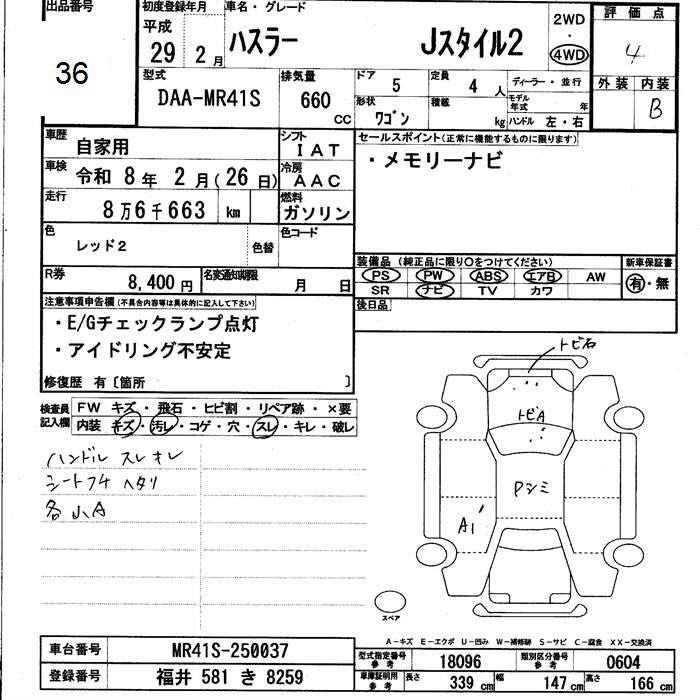 出品番号
36
初度登録年月
平成
29年 2月
車名・グレード
ハスラー Jスタイル2
2WD
・
4WD
評価点
4
外装 内装
B
型式
DAA-MR41S
排気量
660
CC
ドア 5
定員 4人
ディーラー・並行
形状 ワゴン
積載 kg
モデル年式 年
ハンドル 左・右
車歴 自家用
シフト IAT
車検 令和 8年 2月(26日)
冷房 AAC
走行 8万6千663 km
燃料 ガソリン
色 レッド2 色替
色コード
R券 8,400円
名変通知期限 月 日
セールスポイント(正常に機能するものに限ります)
・メモリーナビ
装備品(純正品に限り○をつけてください)
新車保証書
PS PW ABS エアB AW
有・無
SR ナビ TV カワ
後日品
注意事項申告欄(不具合内容等は具体的に記入して下さい)
・E/Gチェックランプ点灯
・アイドリング不安定
修復歴 有〔箇所 〕
検査員記入欄
FW キズ・飛石・ヒビ割・リペア跡・×要
内装 キズ・汚レ・コゲ・穴・スレ・キレ・破レ
ハンドル スレキレ
シートフチ ヘタリ
各小A
トビ石
トビA
Pシミ
A1
スペア
A-キズ E-エクボ U-凹み W-補修跡 S-サビ C-腐食 XX-交換済
車台番号 MR41S-250037
登録番号 福井 581 き 8259
型式指定番号参考 18096
類別区分番号参考 0604
車庫証明用参考 長さ 339cm 幅 147cm 高さ 166cm